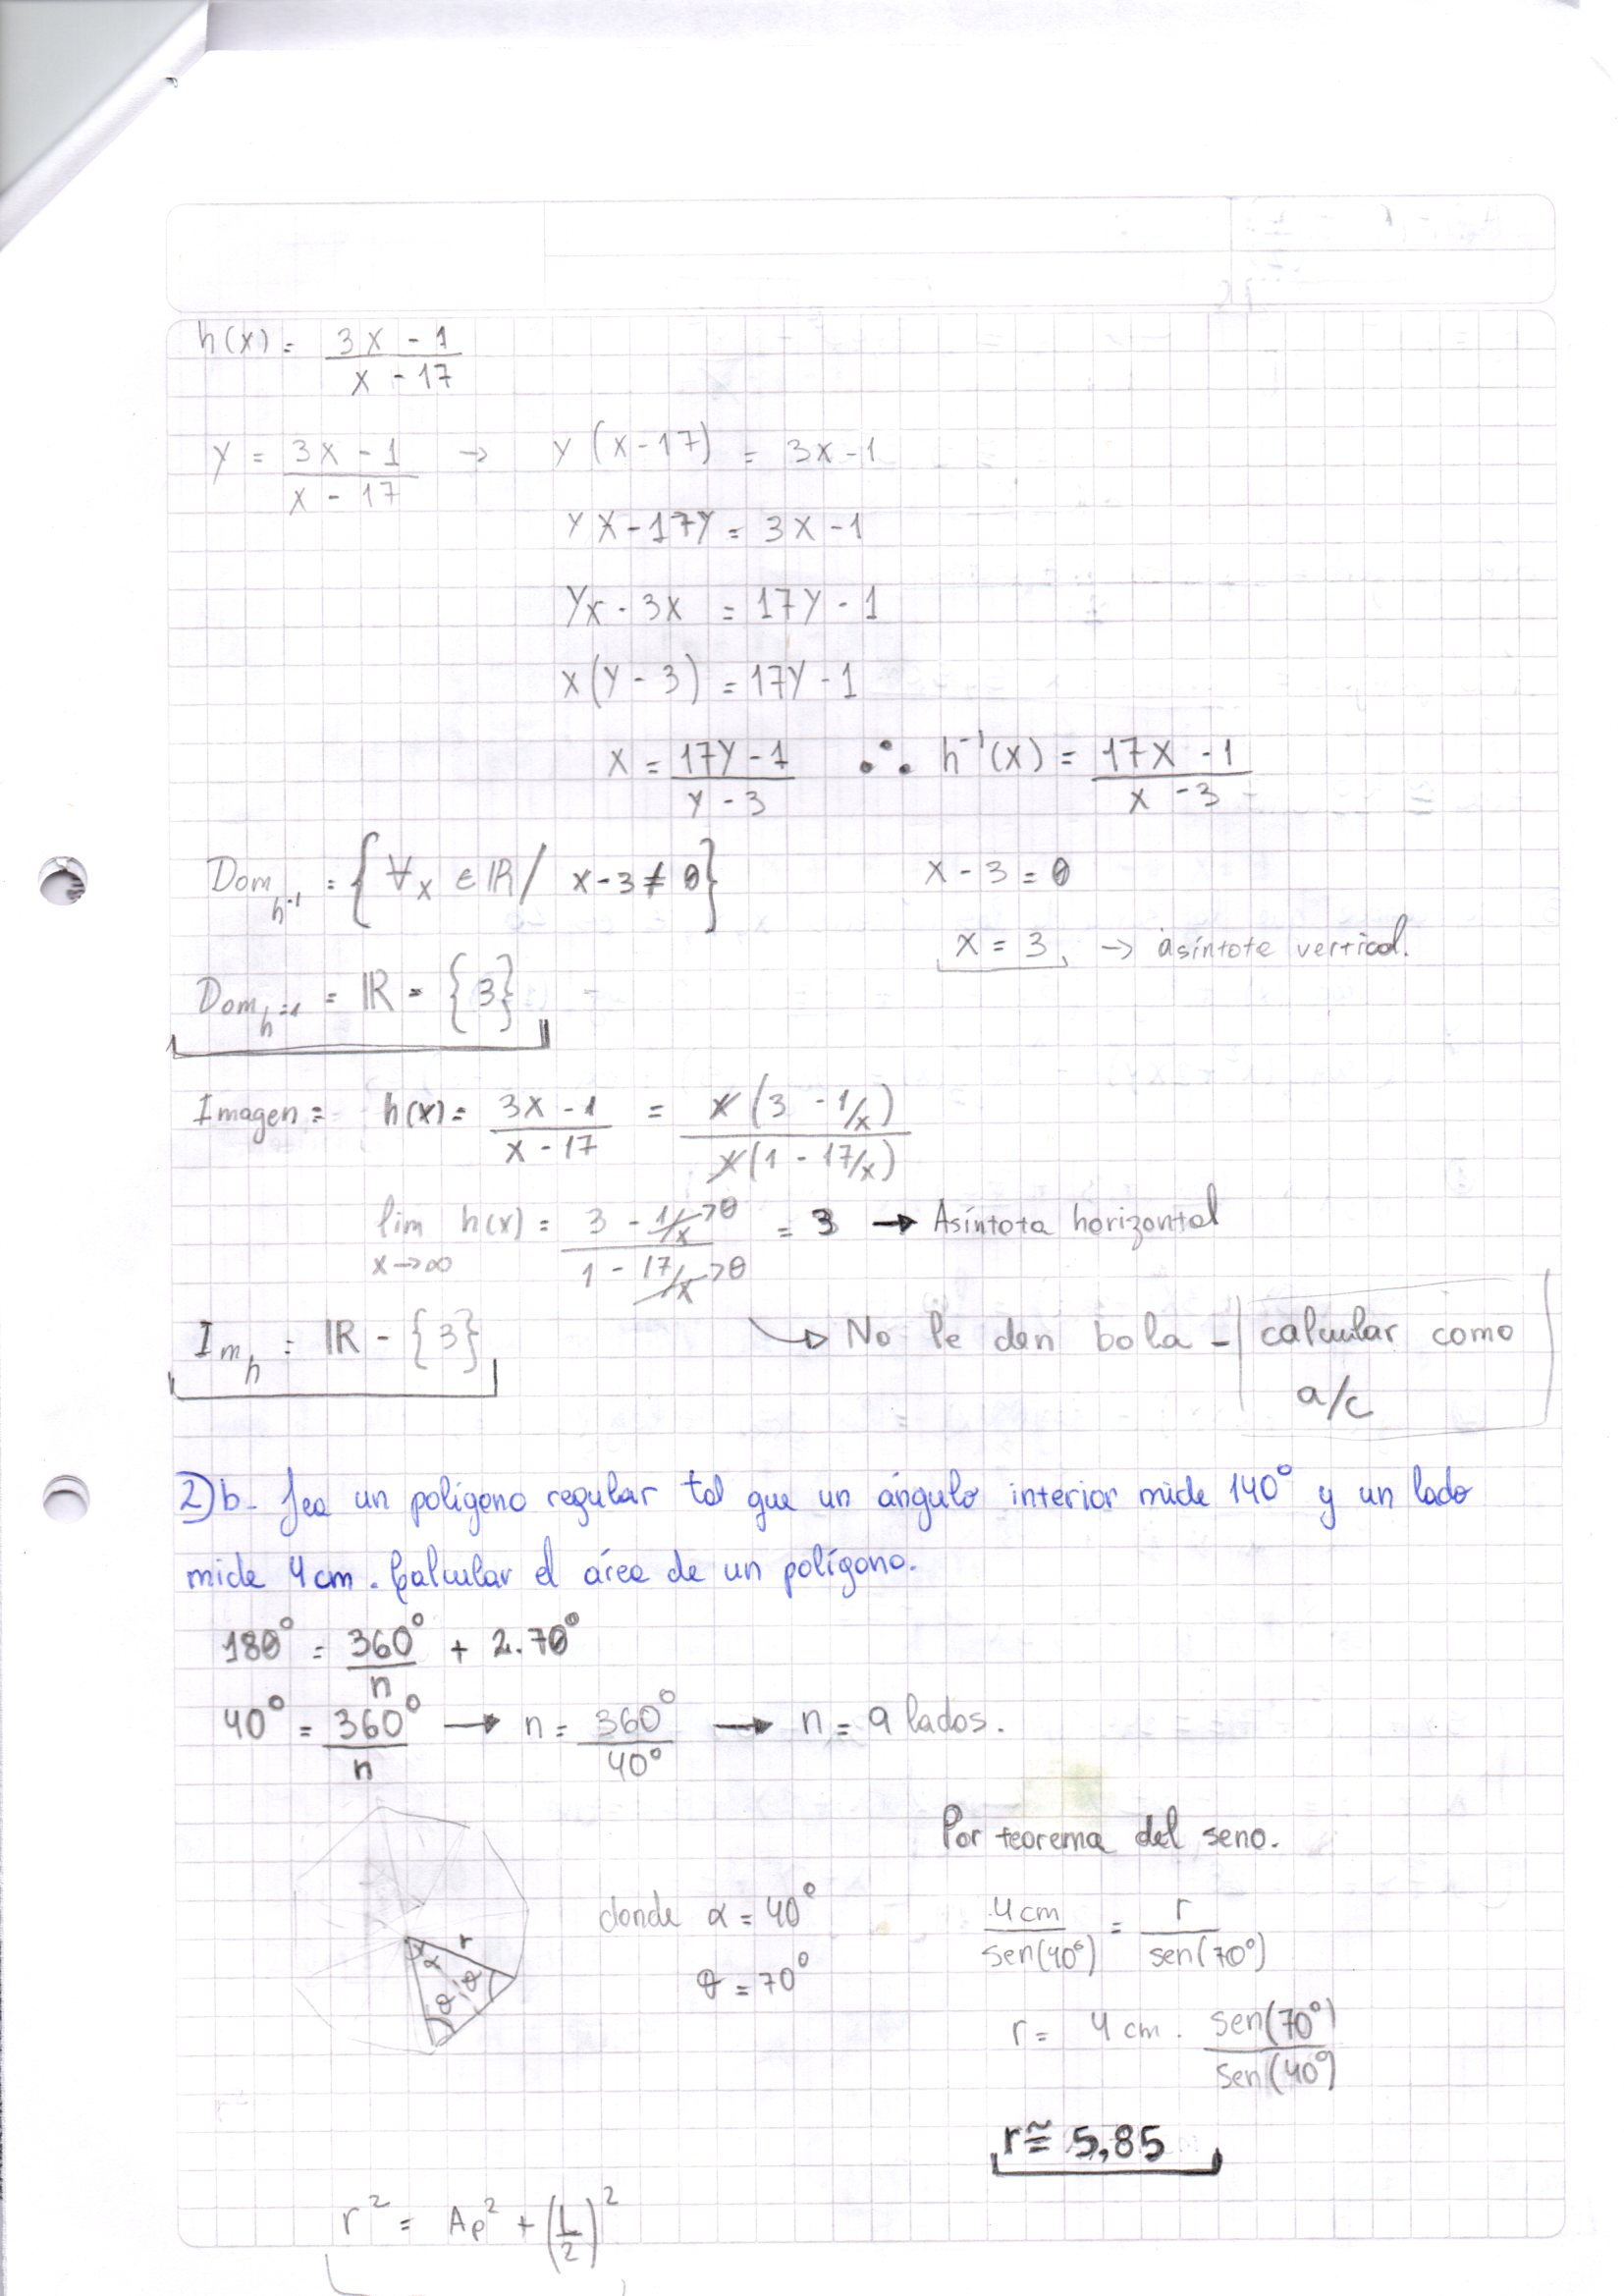 h(x) = (3x - 1)/(x - 17)
y = (3x - 1)/(x - 17) → y (x - 17) = 3x - 1
yx - 17y = 3x - 1
yx - 3x = 17y - 1
x(y - 3) = 17y - 1
x = (17y - 1)/(y - 3) ∴ h⁻¹(x) = (17x - 1)/(x - 3)
Dom h⁻¹ = {∀x ∈ ℝ / x - 3 ≠ 0} x - 3 = 0
x = 3 → asíntote vertical.
Dom h⁻¹ = ℝ - {3}
Imagen = h(x) = (3x - 1)/(x - 17) = x(3 - 1/x)/x(1 - 17/x)
lim x→∞ h(x) = (3 - 1/x→0)/(1 - 17/x→0) = 3 → Asíntota horizontal
Im h = ℝ - {3} → No le den bola - calcular como
a/c
2)b- Sea un polígono regular tal que un ángulo interior mide 140° y un lado
mide 4cm. Calcular el área de un polígono.
180° = 360°/n + 2.70°
40° = 360°/n → n = 360°/40° → n = 9 lados.
Por teorema del seno.
donde α = 40° 4cm/sen(40°) = r/sen(70°)
θ = 70°
α r
θ θ
r = 4cm . sen(70°)/sen(40°)
r ≅ 5,85
r² = Ap² + (L/2)²